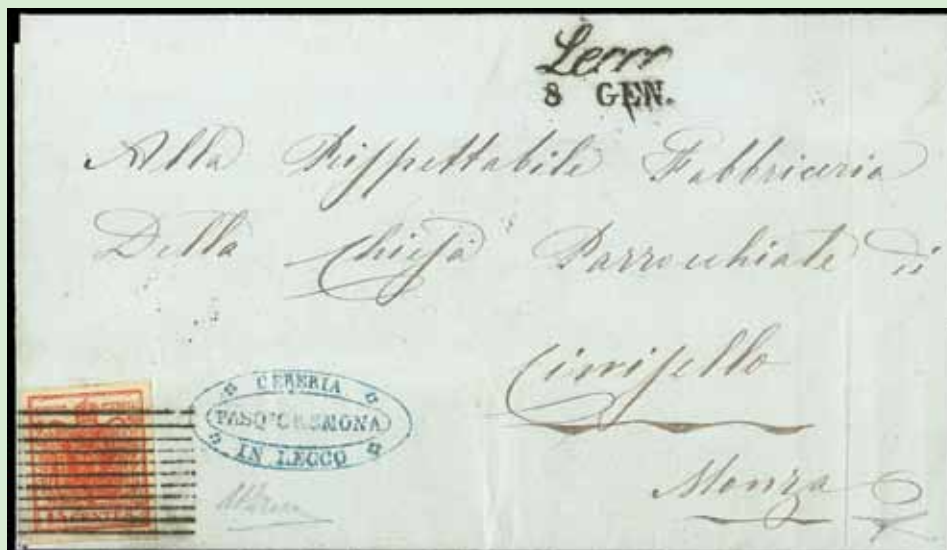 Lecco
8 GEN.
Alla Rispettabile Fabbriceria
Della Chiesa Parrocchiale di
Cinisello
Monza
CERERIA
PASQ. CREMONA
IN LECCO
15 CENTES